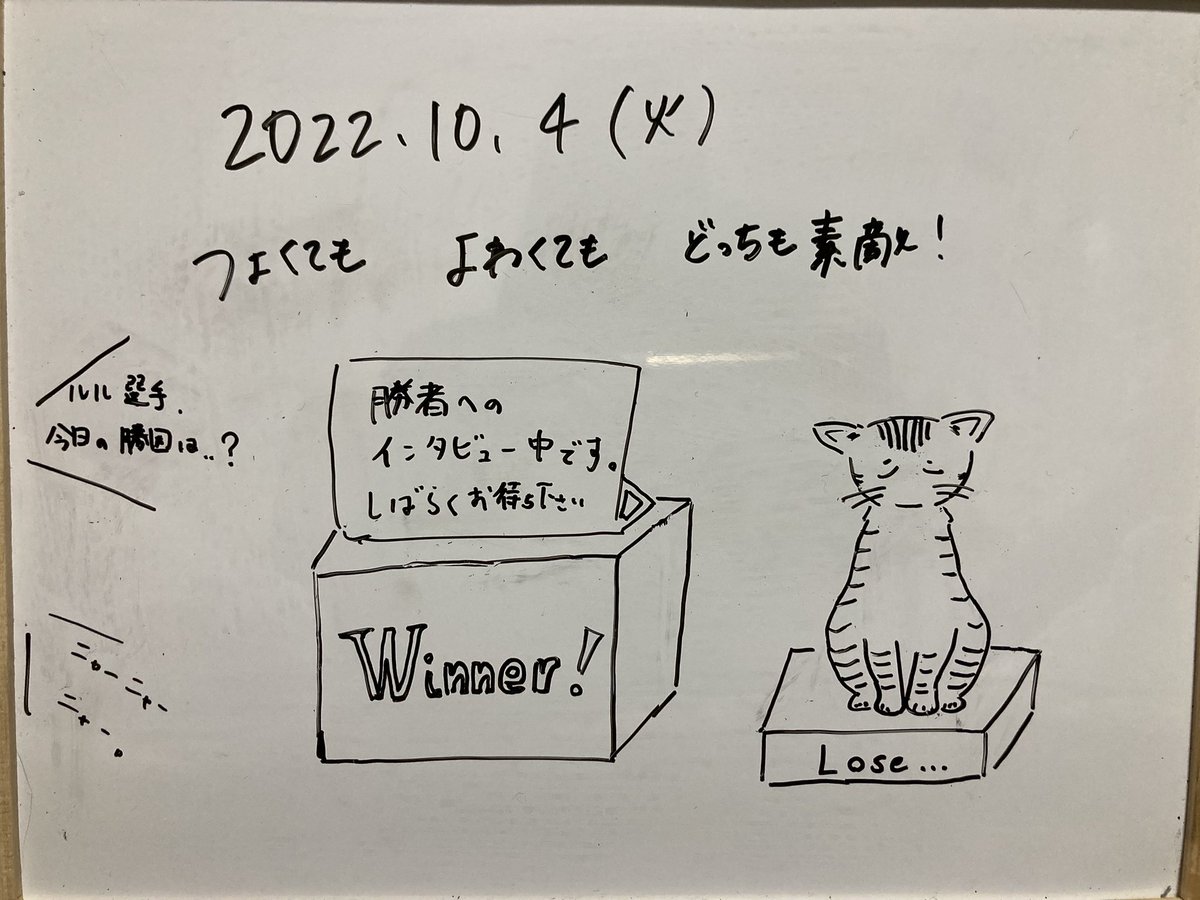 2022.10.4(火)
つよくても よわくても どっちも素敵!
ルル選手.
今日の勝因は..?
勝者への
インタビュー中です。
しばらくお待ち下さい
Winner!
Lose...
ニャーニャー
ニャー。